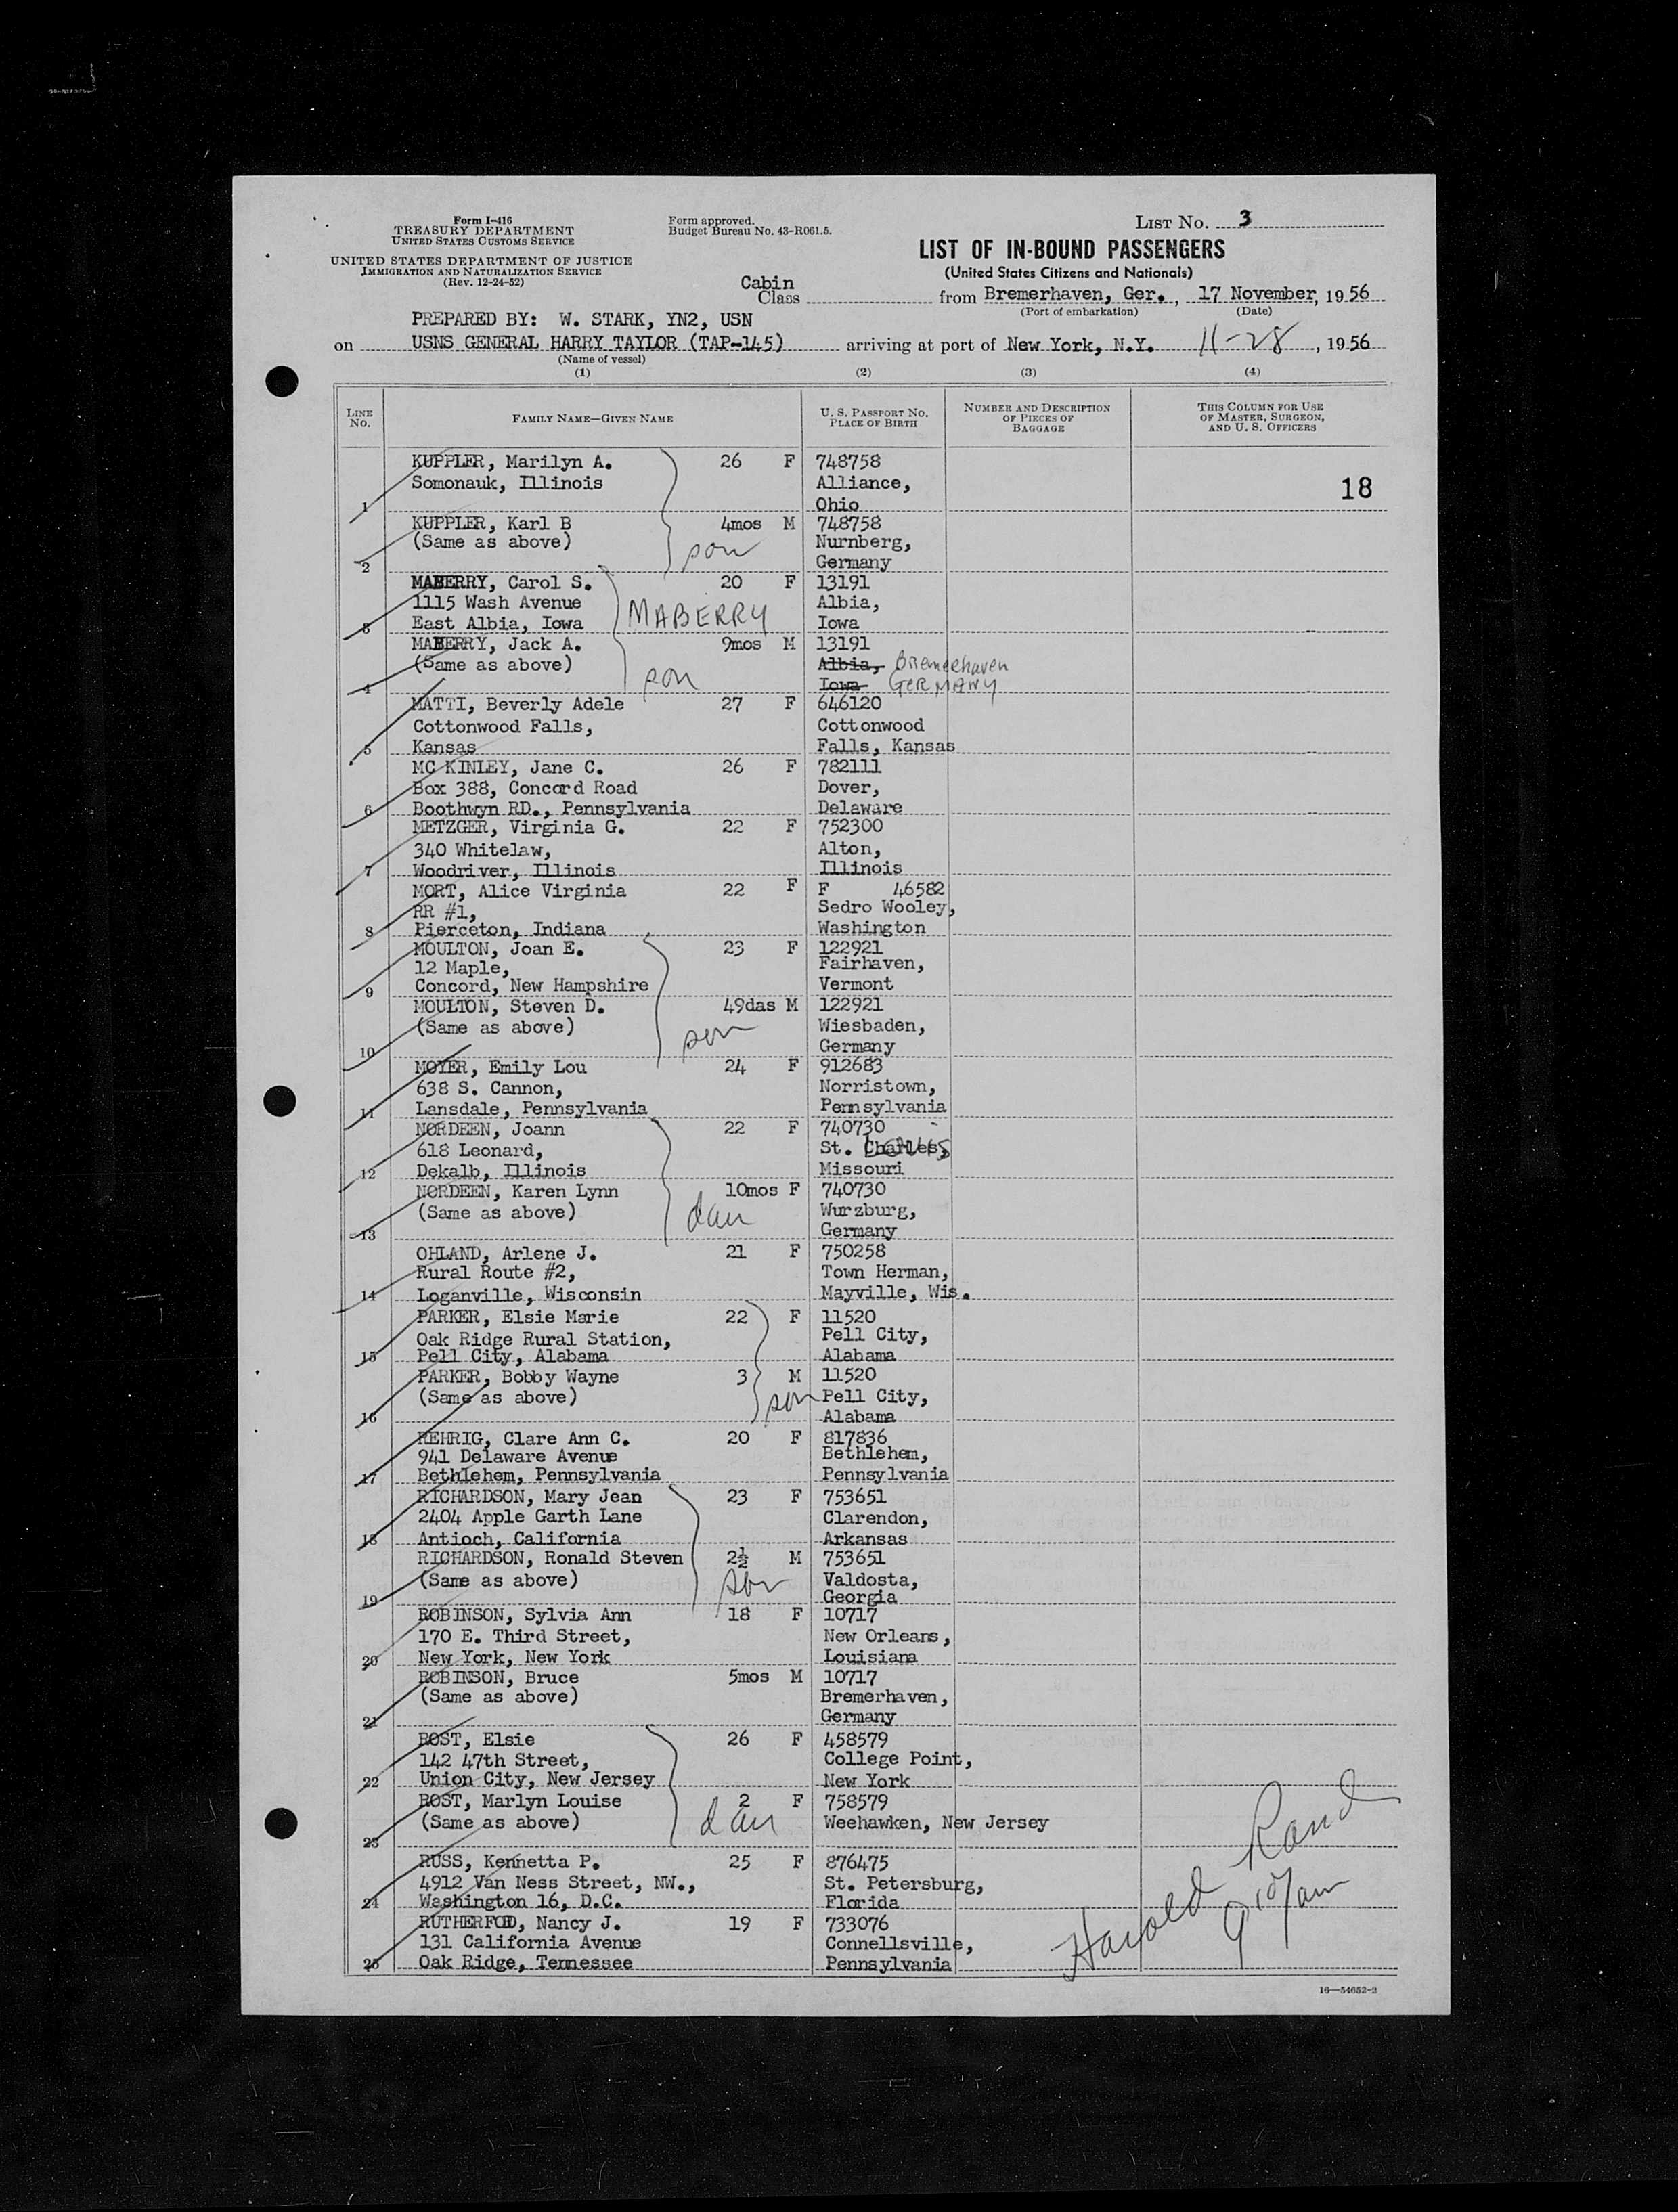 Form I-416
TREASURY DEPARTMENT
UNITED STATES CUSTOMS SERVICE
UNITED STATES DEPARTMENT OF JUSTICE
IMMIGRATION AND NATURALIZATION SERVICE
(Rev. 12-24-52)
Form approved.
Budget Bureau No. 43-R061.5.
LIST No. 3
LIST OF IN-BOUND PASSENGERS
(United States Citizens and Nationals)
Cabin
Class from Bremerhaven, Ger., 17 November, 1956
(Port of embarkation) (Date)
PREPARED BY: W. STARK, YN2, USN
on USNS GENERAL HARRY TAYLOR (TAP-145) arriving at port of New York, N.Y. 11-28, 1956
(Name of vessel)
(1) (2) (3) (4)
LINE NO. FAMILY NAME—GIVEN NAME U. S. PASSPORT NO. PLACE OF BIRTH NUMBER AND DESCRIPTION OF PIECES OF BAGGAGE THIS COLUMN FOR USE OF MASTER, SURGEON, AND U. S. OFFICERS
KUPPLER, Marilyn A. 26 F 748758
Somonauk, Illinois Alliance, 18
1 Ohio
KUPPLER, Karl B 4mos M 748758
(Same as above) son Nurnberg,
2 Germany
MABERRY, Carol S. 20 F 13191
1115 Wash Avenue MABERRY Albia,
3 East Albia, Iowa Iowa
MABERRY, Jack A. 9mos M 13191
(Same as above) son Albia, Bremerhaven
4 Iowa GERMANY
MATTI, Beverly Adele 27 F 646120
Cottonwood Falls, Cottonwood
5 Kansas Falls, Kansas
MC KINLEY, Jane C. 26 F 782111
Box 388, Concord Road Dover,
6 Boothwyn RD., Pennsylvania Delaware
METZGER, Virginia G. 22 F 752300
340 Whitelaw, Alton,
7 Woodriver, Illinois Illinois
MORT, Alice Virginia 22 F F 46582
RR #1, Sedro Wooley,
8 Pierceton, Indiana Washington
MOULTON, Joan E. 23 F 122921
12 Maple, Fairhaven,
9 Concord, New Hampshire Vermont
MOULTON, Steven D. 49das M 122921
(Same as above) son Wiesbaden,
10 Germany
MOYER, Emily Lou 24 F 912683
638 S. Cannon, Norristown,
11 Lansdale, Pennsylvania Pennsylvania
NORDEEN, Joann 22 F 740730
618 Leonard, St. Charles,
12 Dekalb, Illinois Missouri
NORDEEN, Karen Lynn 10mos F 740730
(Same as above) dau Wurzburg,
13 Germany
OHLAND, Arlene J. 21 F 750258
Rural Route #2, Town Herman,
14 Loganville, Wisconsin Mayville, Wis.
PARKER, Elsie Marie 22 F 11520
Oak Ridge Rural Station, Pell City,
15 Pell City, Alabama Alabama
PARKER, Bobby Wayne 3 M 11520
(Same as above) son Pell City,
16 Alabama
REHRIG, Clare Ann C. 20 F 817836
941 Delaware Avenue Bethlehem,
17 Bethlehem, Pennsylvania Pennsylvania
RICHARDSON, Mary Jean 23 F 753651
2404 Apple Garth Lane Clarendon,
18 Antioch, California Arkansas
RICHARDSON, Ronald Steven 2½ M 753651
(Same as above) son Valdosta,
19 Georgia
ROBINSON, Sylvia Ann 18 F 10717
170 E. Third Street, New Orleans,
20 New York, New York Louisiana
ROBINSON, Bruce 5mos M 10717
(Same as above) Bremerhaven,
21 Germany
ROST, Elsie 26 F 458579
142 47th Street, College Point,
22 Union City, New Jersey New York
ROST, Marlyn Louise 2 F 758579
(Same as above) dau Weehawken, New Jersey
23
RUSS, Kennetta P. 25 F 876475
4912 Van Ness Street, NW., St. Petersburg,
24 Washington 16, D.C. Florida
RUTHERFOD, Nancy J. 19 F 733076
131 California Avenue Connellsville,
25 Oak Ridge, Tennessee Pennsylvania
Harold Rand
9:07am
16—54652-2